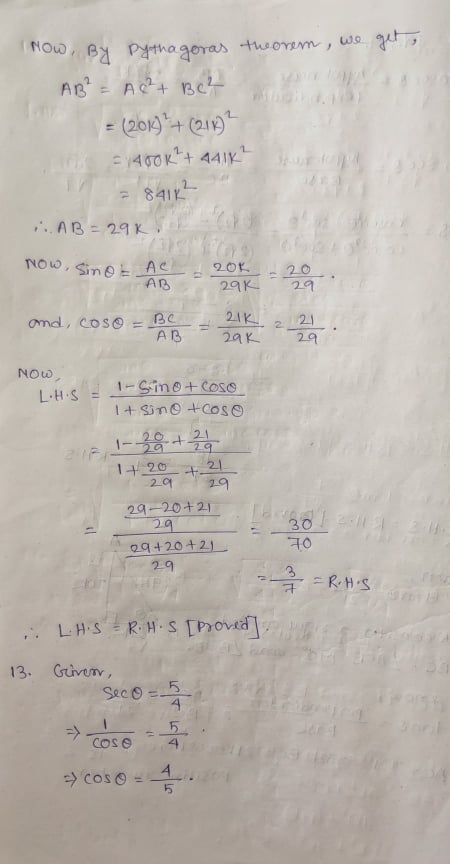 Now, By Pythagoras theorem, we get,
AB² = AC² + BC²
= (20K)² + (21K)²
= 400K² + 441K²
= 841K²
∴ AB = 29K.
Now, Sinθ = AC/AB = 20K/29K = 20/29.
and, cosθ = BC/AB = 21K/29K = 21/29.
Now,
L.H.S = 1-Sinθ+cosθ / 1+sinθ+cosθ
= 1-20/29+21/29 / 1+20/29+21/29
= (29-20+21)/29 / (29+20+21)/29 = 30/70
= 3/7 = R.H.S
∴ L.H.S = R.H.S [Proved].
13. Given,
Secθ = 5/4
⇒ 1/cosθ = 5/4.
⇒ cosθ = 4/5.